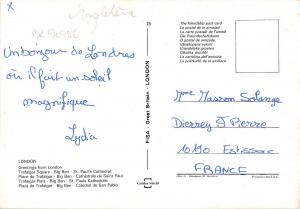 x
Angleterre
Un bonjour de Londres
où il fait un soleil
magnifique
Lydia
LONDON
Greetings from London
Trafalgar Square - Big Ben - St. Paul's Cathedral
Place de Trafalgar - Big Ben - Cathédrale de Saint Paul
Trafalgar Platz - Big Ben - St. Pauls Kathedrale
Plaza de Trafalgar - Big Ben - Catedral de San Pablo
73
PISA - Great Britain - LONDON
Golden Shield
The friendship post card
La carte postale de l'amitié
Die Freundschaftskarte
O postal da amizade
Vänskapens vykort
Vriendschapskaart
La postal de la amistad
La cartolina dell'amicizia
Mme Masson Solange
Dierrey St Pierre
10190 Estissac
FRANCE